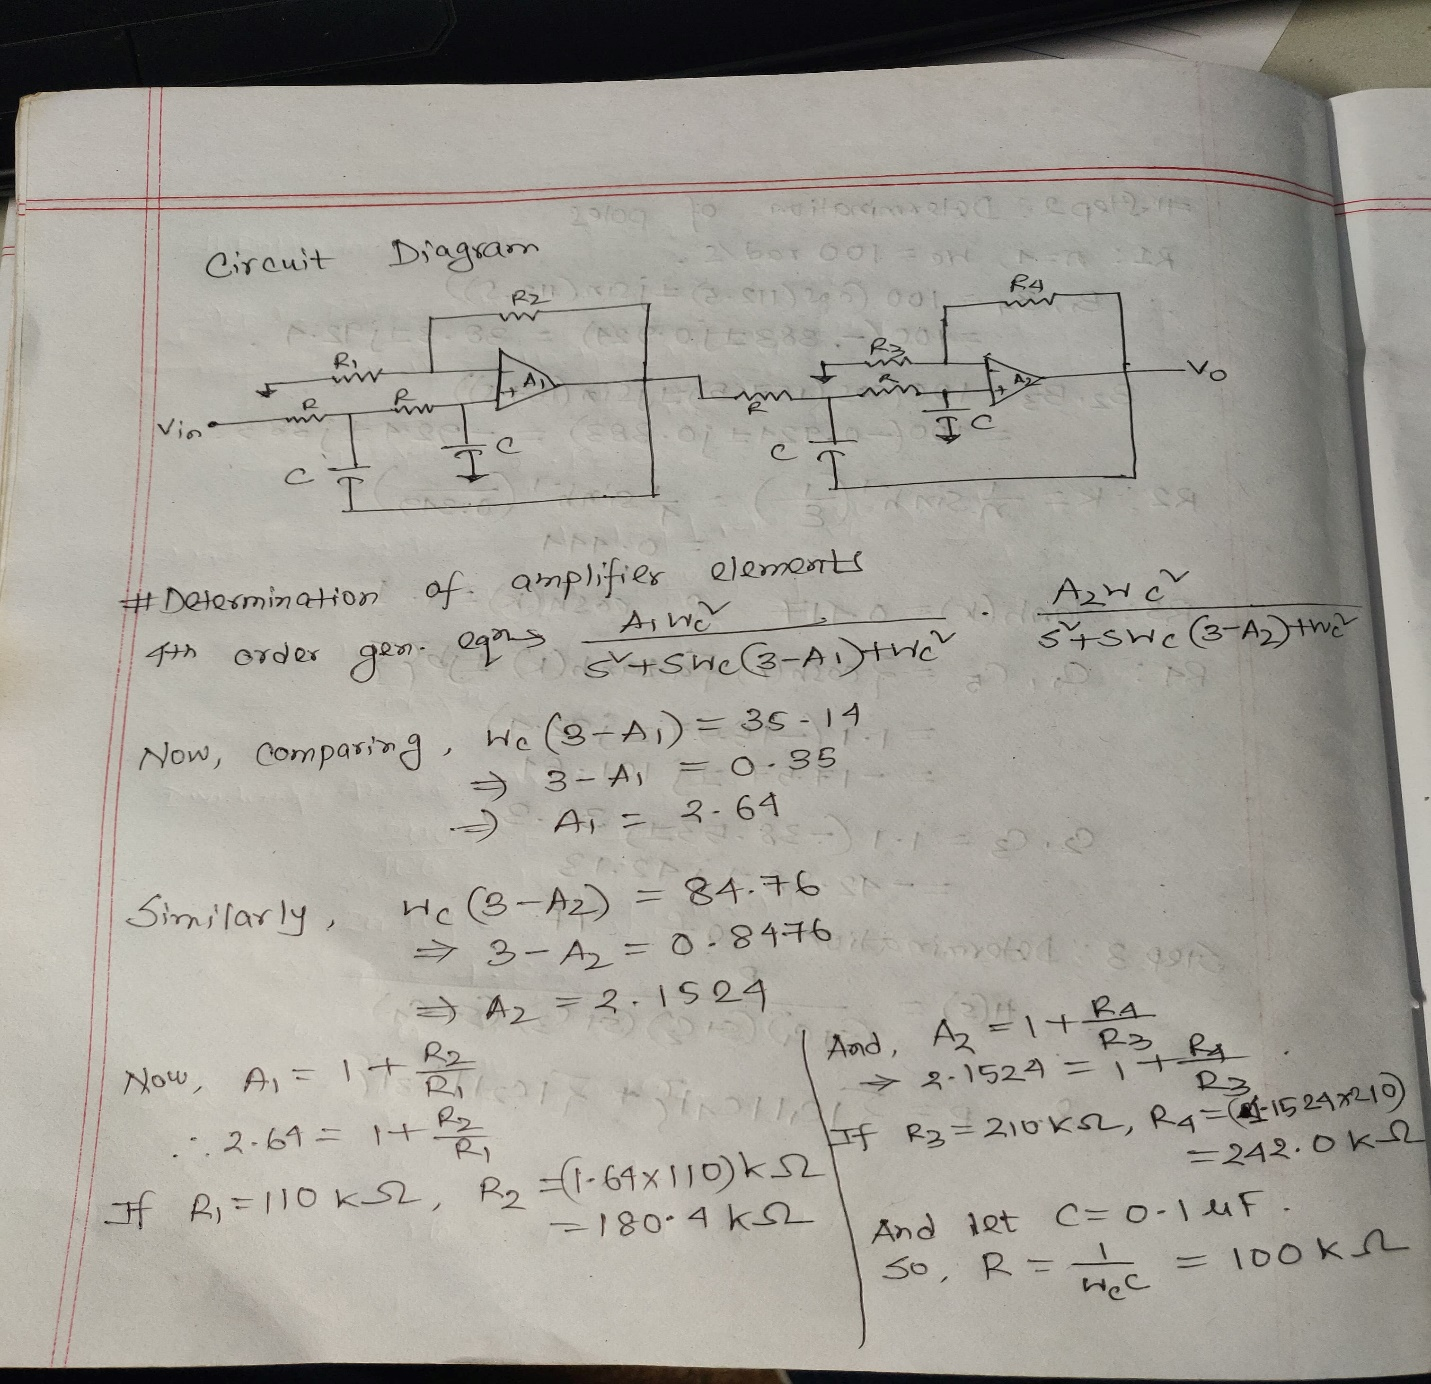 Circuit Diagram
R2
R4
R1
R3
A1
A2
Vo
R
R
R
R
Vin
C
C
C
C
# Determination of amplifier elements
4th order gen. eqns A1Wc² / S²+SWc(3-A1)+Wc² · A2Wc² / S²+SWc(3-A2)+Wc²
Now, comparing, Wc(3-A1) = 35.14
⇒ 3-A1 = 0.35
⇒ A1 = 2.64
Similarly, Wc(3-A2) = 84.76
⇒ 3-A2 = 0.8476
⇒ A2 = 2.1524
Now, A1 = 1+ R2/R1
∴ 2.64 = 1+ R2/R1
If R1 = 110 kΩ, R2 = (1.64x110)kΩ
= 180.4 kΩ
And, A2 = 1+ R4/R3
⇒ 2.1524 = 1+ R4/R3
If R3 = 210 kΩ, R4 = (1.1524x210)
= 242.0 kΩ
And let C = 0.1 uF.
So, R = 1/WcC = 100 kΩ